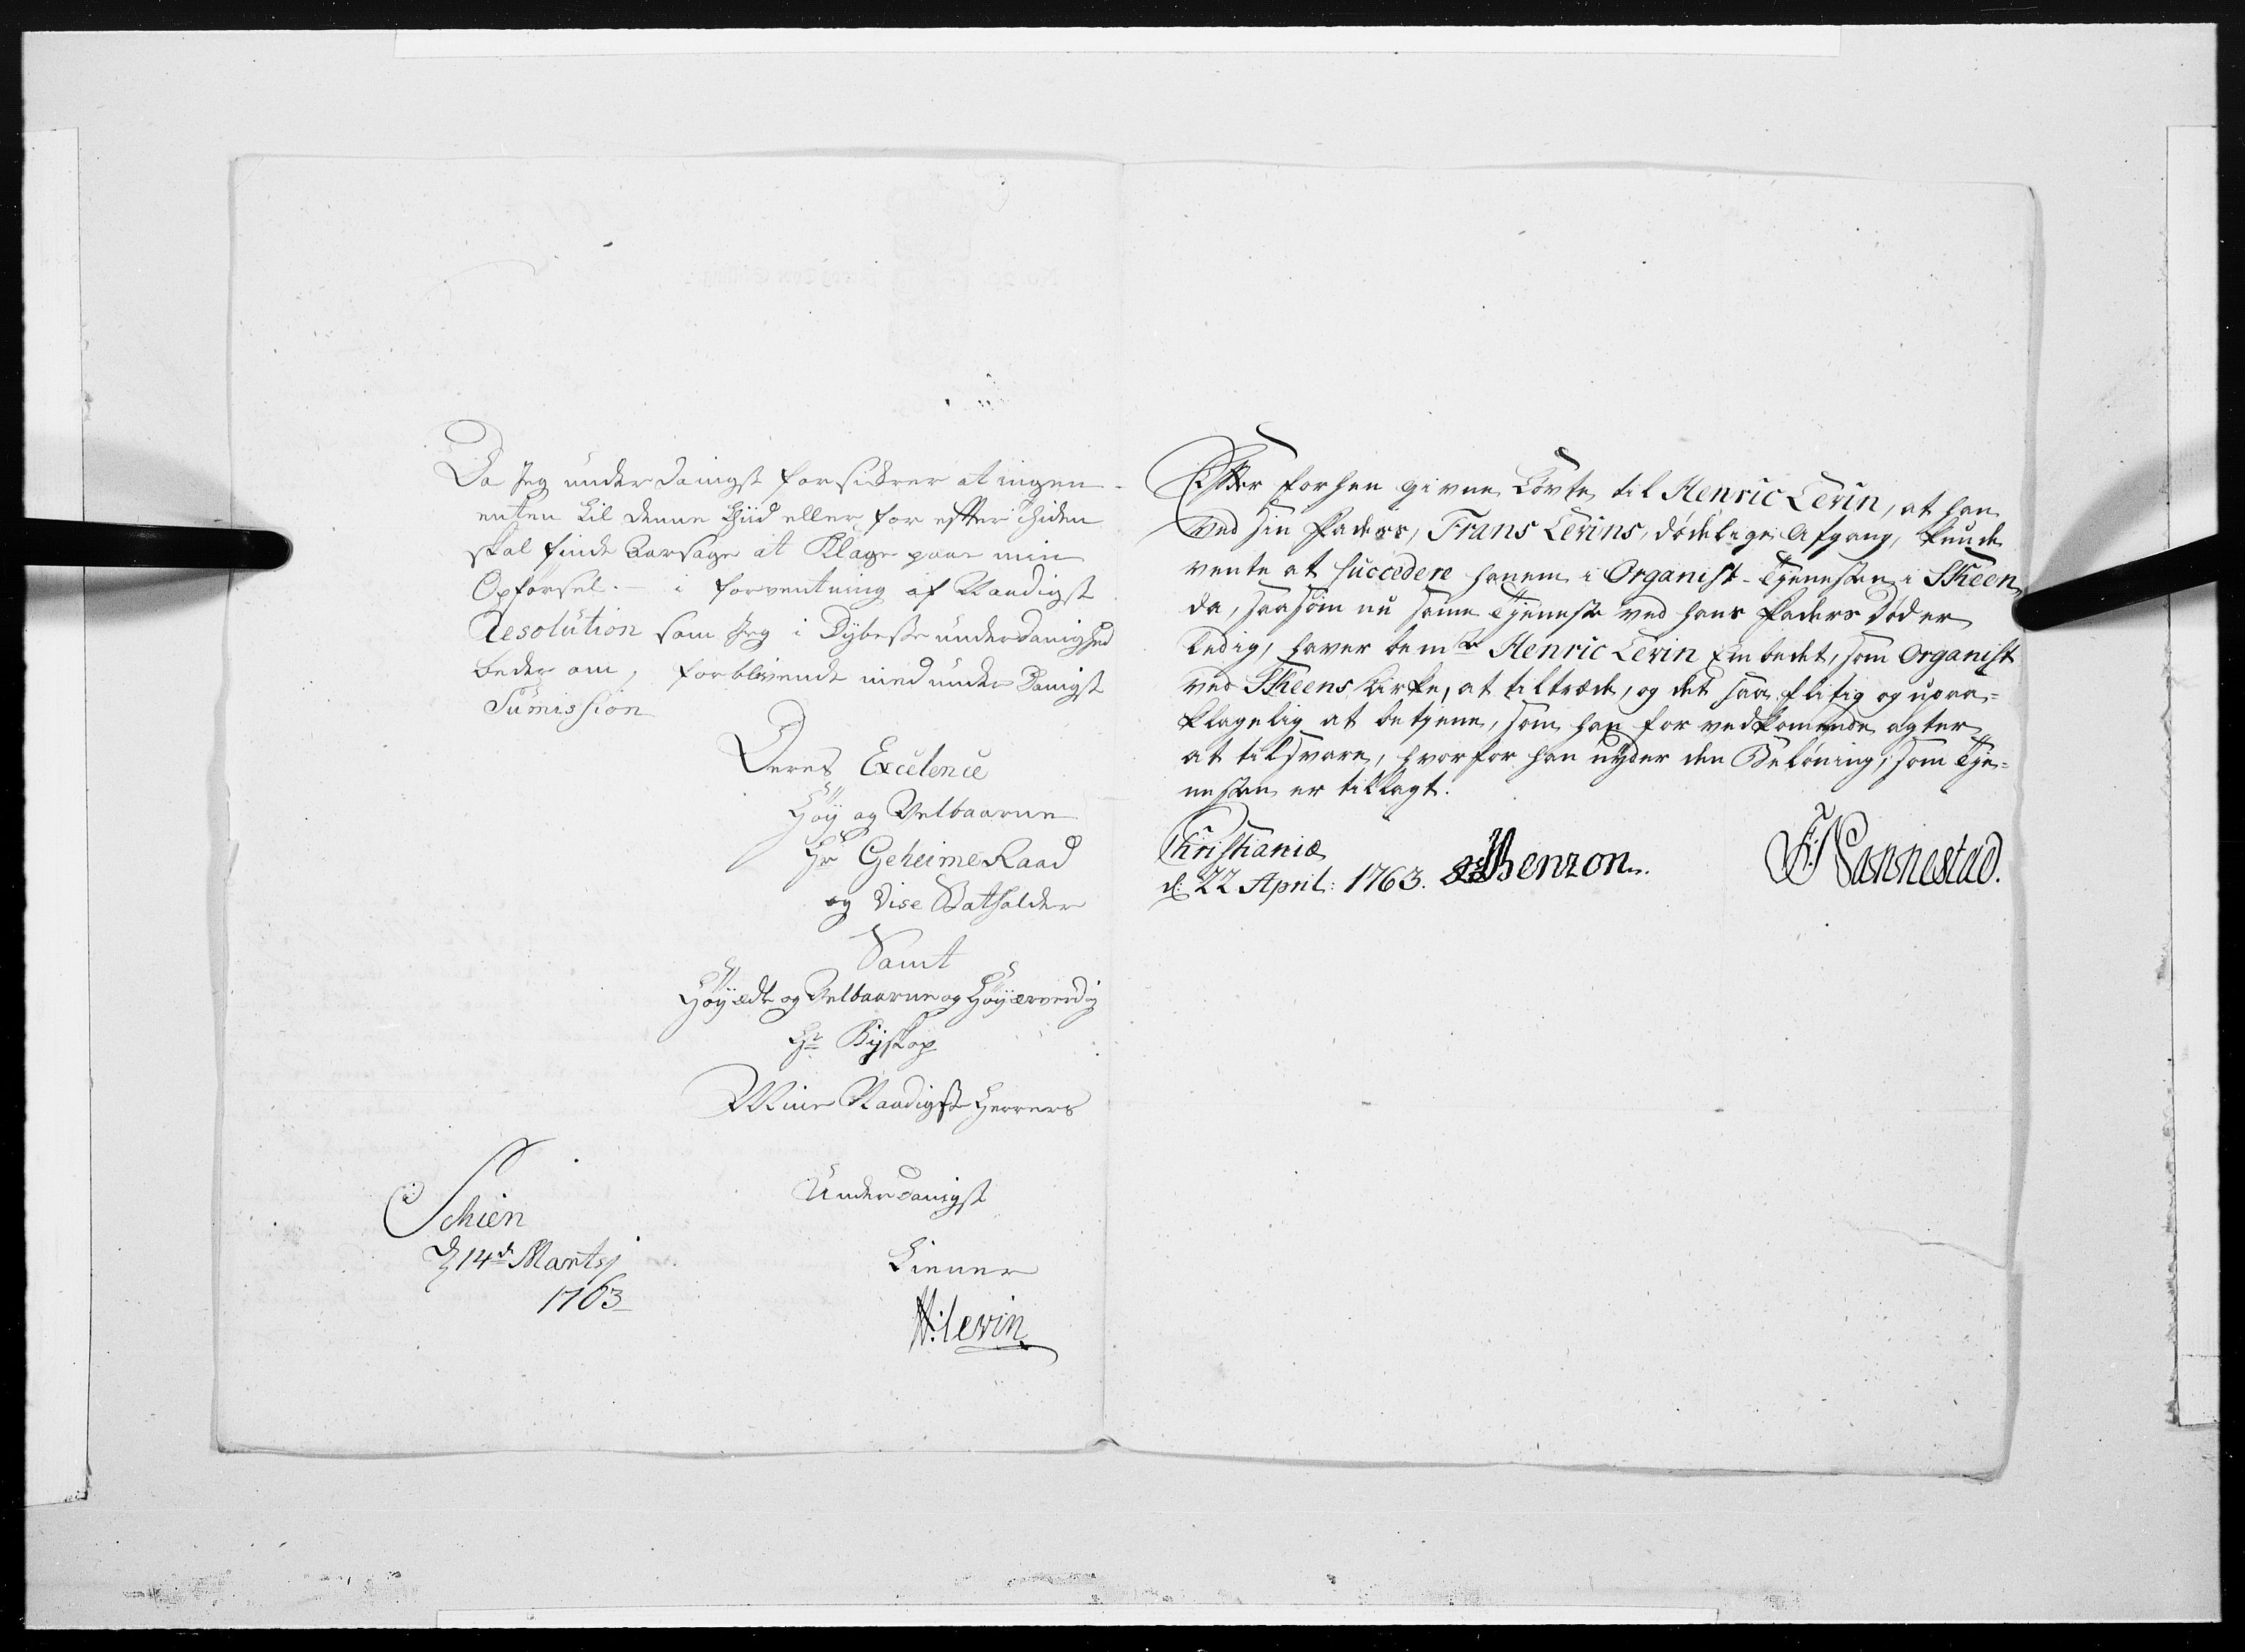 Da Jeg underdanigst forsikrer at ingen
enten til denne Thiid eller for effterthiden
skal finde Aarsage at Klage paae min
Opførsel. i forventning af Naadigst
Resolution som Jeg i Dybeste underdanighed
beder om, forblivende med underdanigst
Sumission
Deres Excelence
Høy og Velbaarne
Hr Geheime Raad
og Vise Statholder
Samt
Høyædle og Velbaarne og Høyærverdig
Hr Byskop
Mine Naadigste Herrers
Underdanigst
Schien
d 14de Martsj
1763
Tiener
H: Levin
Efter forhen givne Løvte til Henric Levin, at han
ved sin Faders, Frans Levins, dødelige Afgang, kunde
vente at succedere hanem i Organist-Tjenesten i Skeen,
da, saasom nu samme Tjeneste ved hans Faders Død er
ledig, haver bemte Henric Levin Embedet, som Organist
ved Skeens Kirke, at tiltræde, og det saa flitig og upaa-
klagelig at betjene, som han for vedkommende agter
at tilsvare, hvorfor han nyder den Beløning, som Tje-
nesten er tillagt.
Christiania
d: 22 April: 1763. Benzon. F. Nannestad.